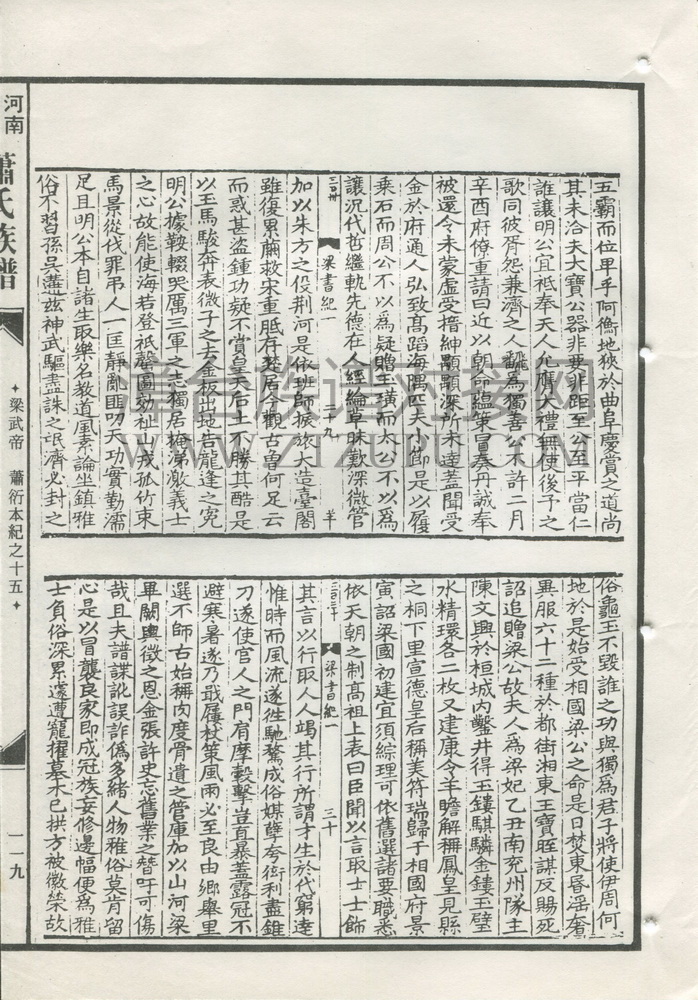 五霸而位卑乎阿衡地狹於曲阜慶賞之道尚
其未洽夫大寶公器非要非距至公至平當仁
誰讓明公宜祗奉天人允膺大禮無使後予之
歌同彼胥怨兼濟之人翻為獨善公不許二月
辛酉府僚重請曰近以朝命蘊策冒奏丹誠奉
被還令未蒙虛受搢紳顒顒深所未達蓋聞受
金於府通人弘致高蹈海隅匹夫小節是以履
乘石而周公不以為疑贈玉璜而太公不以為
讓況代哲繼軌先德在人經綸草昧歎深微管
三百卅
梁書紀一
二十九
羊
加以朱方之役荆河是依班師振旅大造臺閣
雖復累繭救宋重胝存楚居今觀古曾何足云
而惑甚盜鍾功疑不賞皇天后土不勝其酷是
以玉馬駿奔表微子之去金板出地告龍逢之寃
明公據鞍輟哭厲三軍之志獨居掩涕激義士
之心故能使海若登祗罄圖効祉山戎孤竹束
馬景從伐罪弔人一匡靜亂匪叨天功實勤濡
足且明公本自諸生取樂名教道風素論坐鎮雅
俗不習孫吳遘茲神武驅盡誅之氓濟必封之
俗龜玉不毀誰之功與獨為君子將使伊周何
地於是始受相國梁公之命是日焚東昏淫奢
異服六十二種於都街湘東王寶晊謀反賜死
詔追贈梁公故夫人為梁妃乙丑南兗州隊主
陳文興於桓城內鑿井得玉鏤騏驎金鏤玉璧
水精環各二枚又建康令羊瞻解稱鳳皇見縣
之桐下里宣德皇后稱美符瑞歸于相國府景
寅詔梁國初建宜須綜理可依舊選諸要職悉
依天朝之制高祖上表曰臣聞以言取士士飾
梁書紀一
三十
其言以行取人人竭其行所謂才生於代窮達
惟時而風流遂徃馳騖成俗媒孽夸衒利盡錐
刀遂使官人之門肩摩轂擊豈直暴蓋露冠不
避寒暑遂乃戢屨杖策風雨必至良由鄉舉里
選不師古始稱肉度骨遺之管庫加以山河梁
畢闕輿徵之恩金張許史忘舊業之替吁可傷
哉且夫譜諜訛誤詐偽多緒人物雅俗莫肯留
心是以冒襲良家即成冠族妄修邊幅便為雅
士負俗深累遽遭寵擢墓木已拱方被徽榮故
河南 蕭氏族譜
梁武帝 蕭衍本紀之十五
一一九
章台族谱对接网
WWW.ZTZUPU.COM